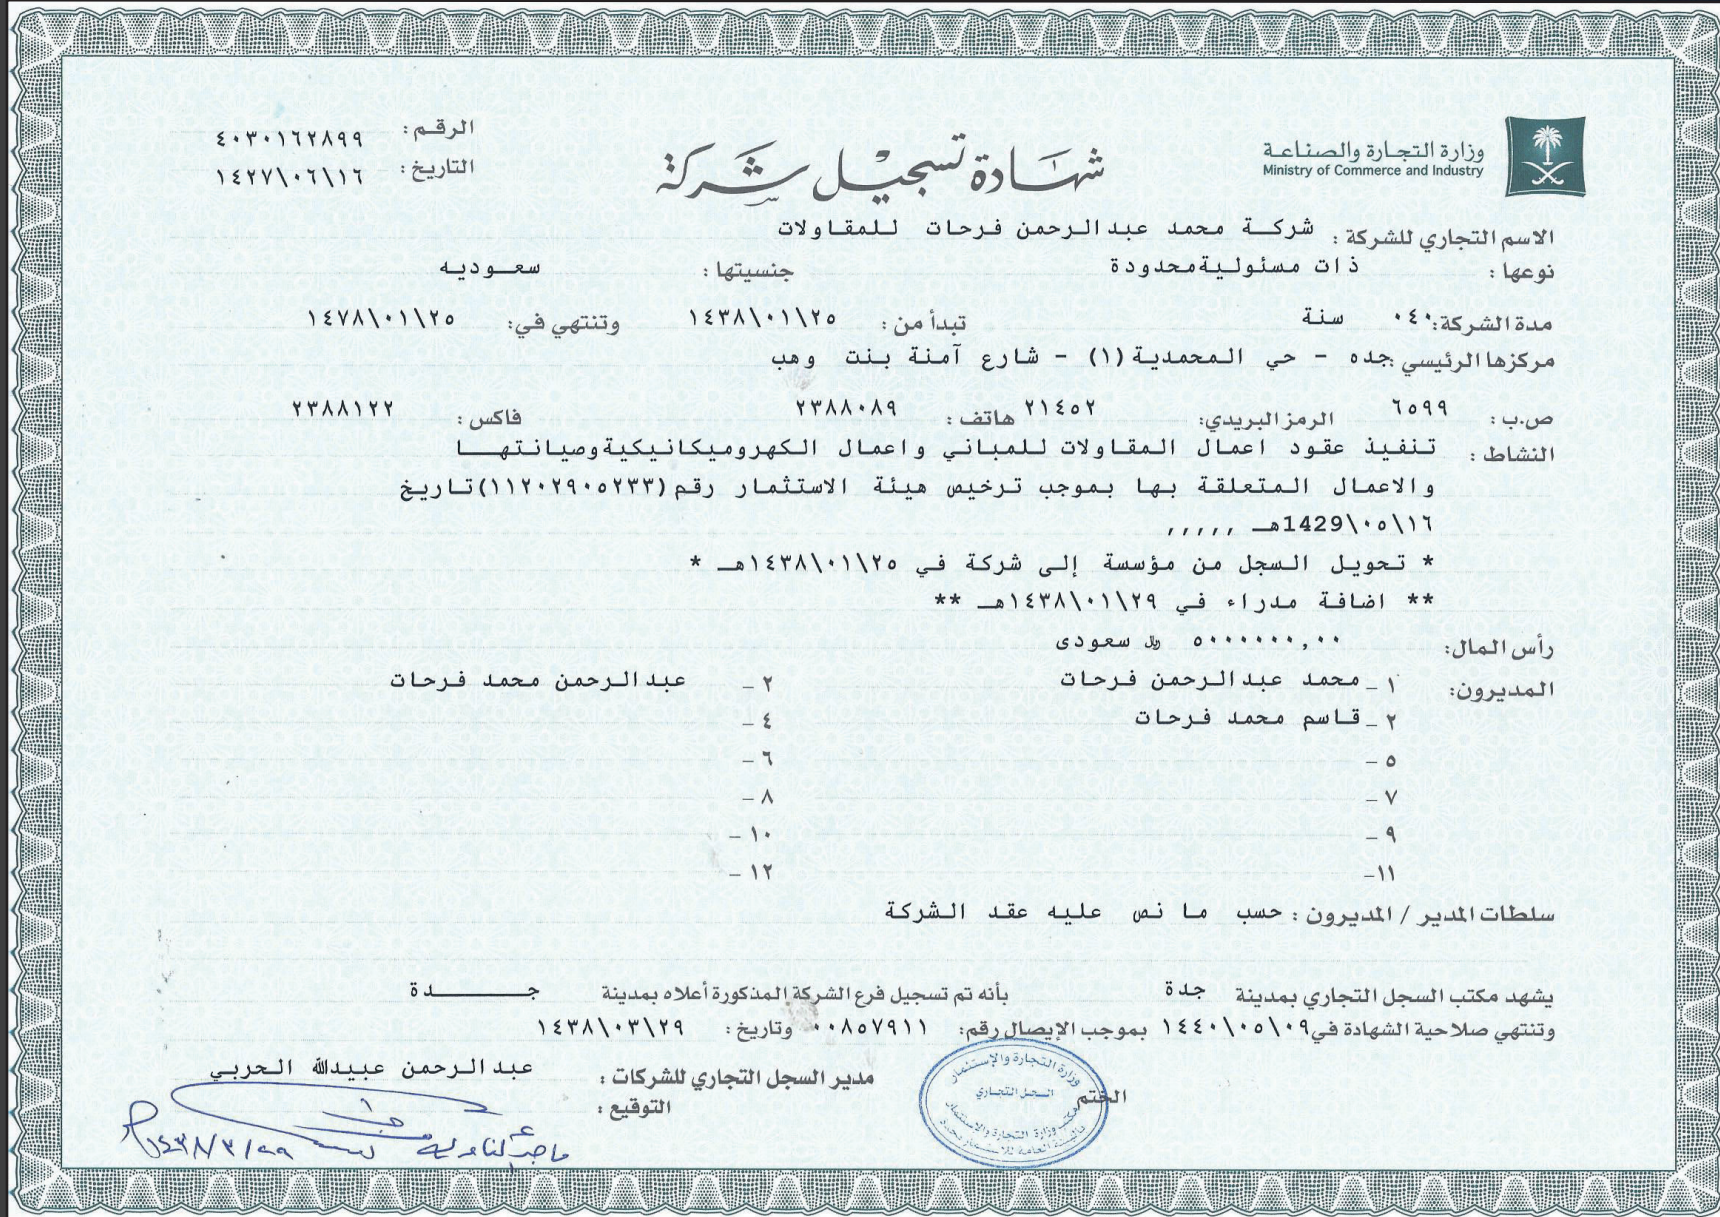 وزارة التجارة والصناعة
Ministry of Commerce and Industry
شهادة تسجيل شركة
الرقم: ٤٠٣٠١٦٢٨٩٩
التاريخ: ١٤٢٧\٠٦\١٦
الاسم التجاري للشركة: شركة محمد عبدالرحمن فرحات للمقاولات
نوعها: ذات مسئولية محدودة جنسيتها: سعوديه
مدة الشركة: ٠٤٠ سنة تبدأ من: ١٤٣٨\٠١\٢٥ وتنتهي في: ١٤٧٨\٠١\٢٥
مركزها الرئيسي: جده - حي المحمدية (١) - شارع آمنة بنت وهب
ص.ب: ٦٥٩٩ الرمز البريدي: ٢١٤٥٢ هاتف: ٢٣٨٨٠٨٩ فاكس: ٢٣٨٨١٢٢
النشاط: تنفيذ عقود اعمال المقاولات للمباني واعمال الكهروميكانيكية وصيانتها
والاعمال المتعلقة بها بموجب ترخيص هيئة الاستثمار رقم (١١٢٠٢٩٠٥٢٣٣) تاريخ
١٦\٠٥\1429هـ ,,,,,
* تحويل السجل من مؤسسة إلى شركة في ١٤٣٨\٠١\٢٥هـ *
** اضافة مدراء في ١٤٣٨\٠١\٢٩هـ **
رأس المال: ٥٠٠٠٠٠٠,٠٠ ريال سعودى
المديرون: ١_ محمد عبدالرحمن فرحات ٢_ عبدالرحمن محمد فرحات
٢_ قاسم محمد فرحات ٤-
٥- ٦-
٧- ٨-
٩- ١٠-
١١- ١٢-
سلطات المدير / المديرون: حسب ما نص عليه عقد الشركة
يشهد مكتب السجل التجاري بمدينة جدة بأنه تم تسجيل فرع الشركة المذكورة أعلاه بمدينة جـدة
وتنتهي صلاحية الشهادة في ١٤٤٠\٠٥\٠٩ بموجب الإيصال رقم: ٠٠٨٥٧٩١١ وتاريخ: ١٤٣٨\٠٣\٢٩
مدير السجل التجاري للشركات: عبدالرحمن عبيدالله الحربي
الختم التوقيع:
وزارة التجارة والإستثمار
السجل التجاري
١٤٣٨/٣/٢٩